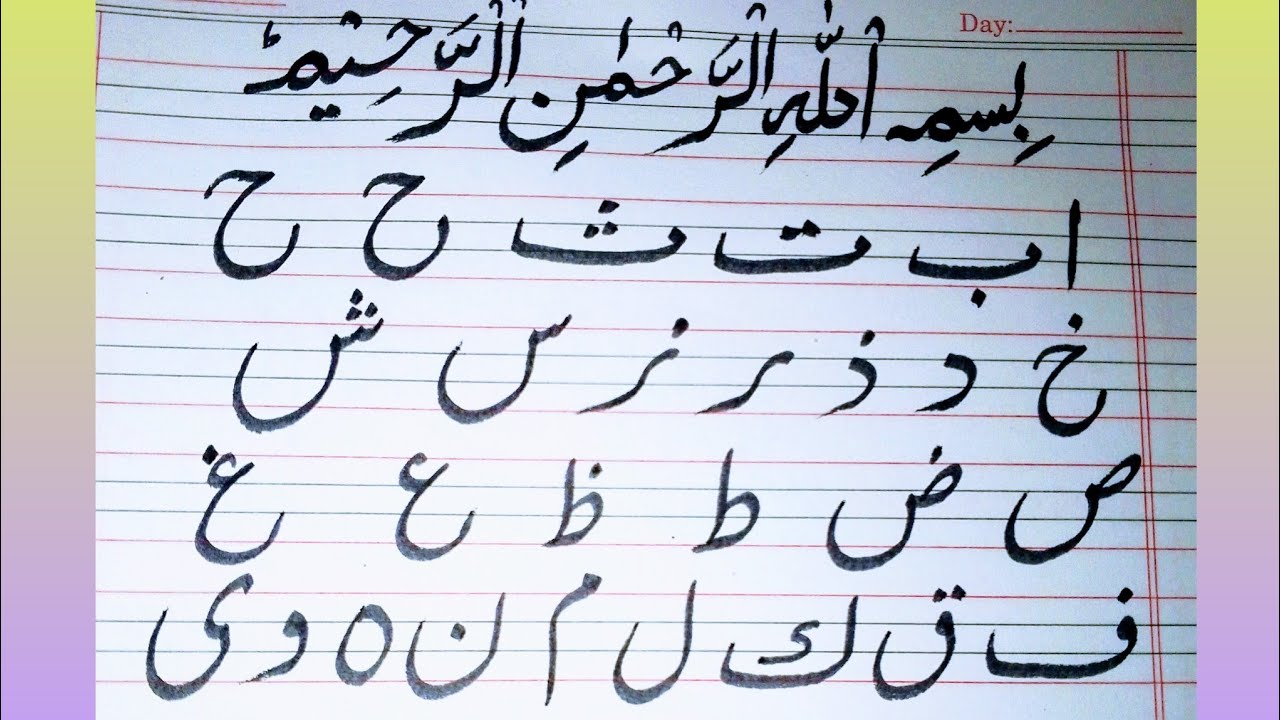 Day:
بِسمِہ اللّٰہِ الرَّحْمٰنِ الْرَّحِیْم
ا ب ت ث ح ح
خ د ذ ر ز س ش
ص ض ط ظ ع غ
ف ق ك ل م ن ه و ى